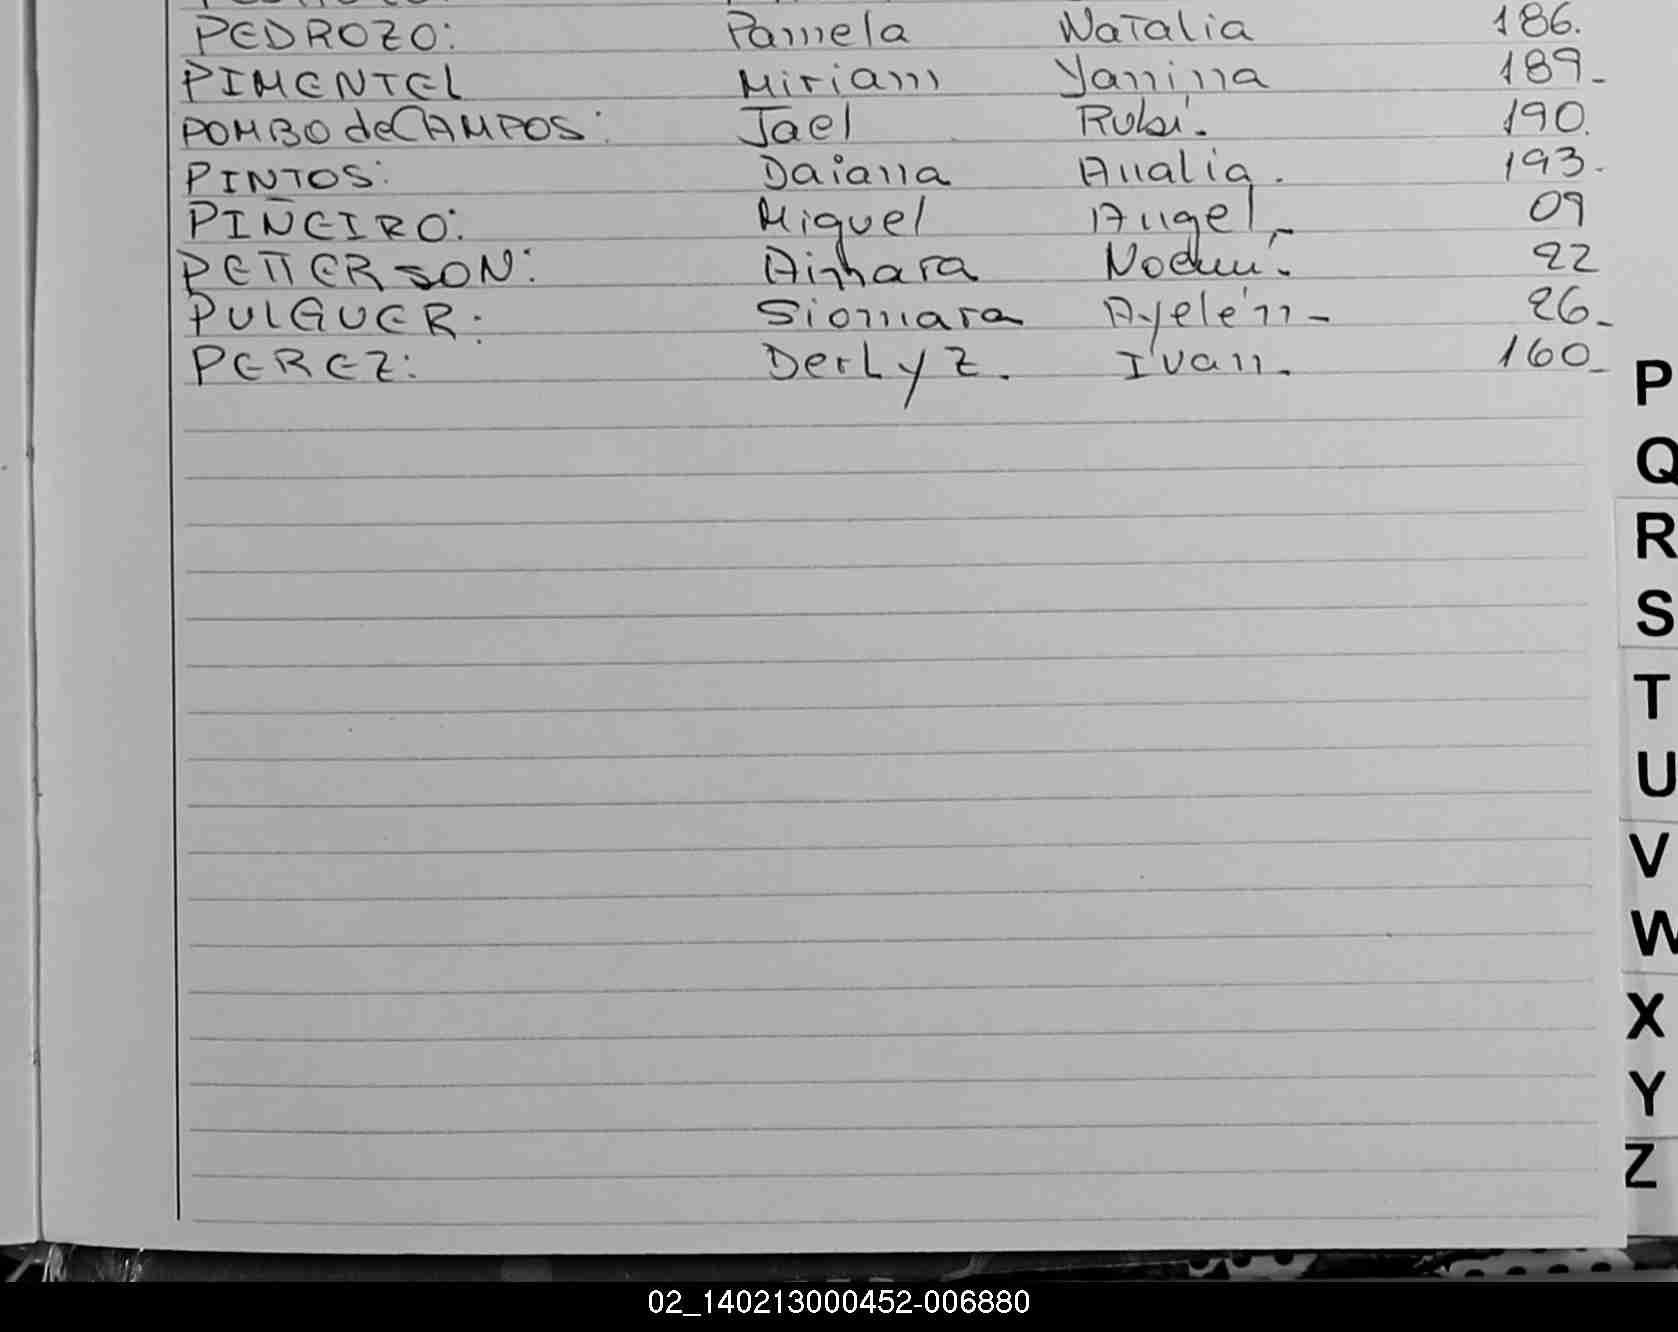 PEDROZO: Pamela Natalia 186.
PIMENTEL Miriam Yanina 189-
POMBO de CAMPOS: Jael Rubí. 190.
PINTOS: Daiana Analia. 193.
PIÑEIRO: Miguel Angel - 09
PETTERSON: Noemí. 22
PULGUER: Siomara Ayelén - 26-
PEREZ: Derlyz. Ivan. 160-
P
Q
R
S
T
U
V
W
X
Y
Z
02_140213000452-006880